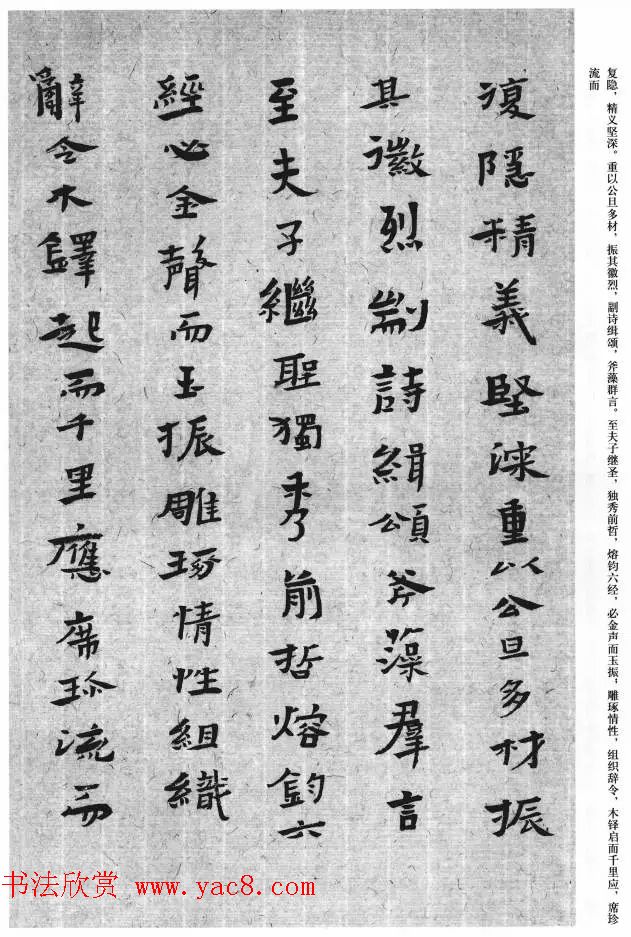 复隐，精义坚深。重以公旦多材，振其徽烈，剬诗缉颂，斧藻群言。至夫子继圣，独秀前哲，熔钧六经，必金声而玉振；雕琢情性，组织辞令，木铎启而千里应，席珍
流而
復隱精義堅深重以公旦多材振
其徽烈剬詩緝頌斧藻羣言
至夫子繼聖獨秀前哲熔鈞六
經必金聲而玉振雕琢情性組織
辭令木鐸起而千里應席珍流而
书法欣赏 www.yac8.com